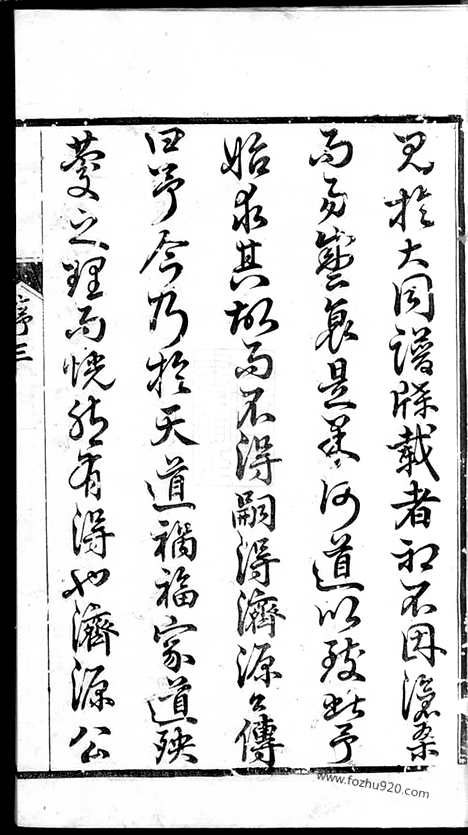 見於大同譜牒載者初不因滄桑
而易盛衰是果何道以致此予
始求其故而不得嗣得濟源公傳
予今乃於天道禍福家道殃
慶之理而恍然有得也濟源公
序 三
www.fozhu920.com